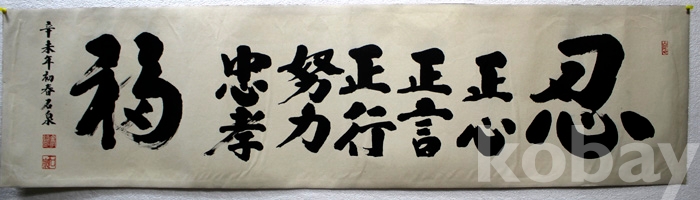 忍
正心
正言
正行
努力
忠孝
福
辛未年初春石泉
kobay